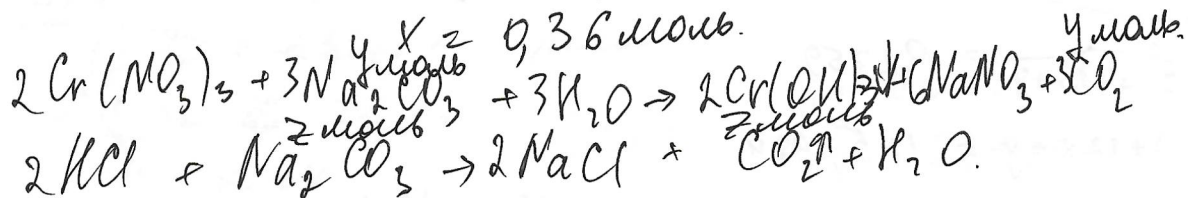 x = 0,36 моль.
y моль y моль.
2Cr(NO₃)₃ + 3Na₂CO₃ + 3H₂O → 2Cr(OH)₃↓ + 6NaNO₃ + 3CO₂
z моль z моль
2HCl + Na₂CO₃ → 2NaCl + CO₂↑ + H₂O.